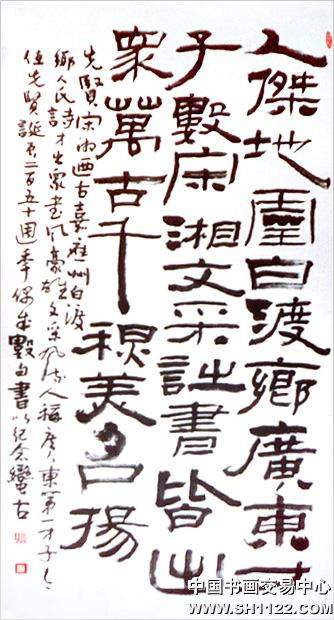 人傑地靈白渡鄉廣東才
子數宋湘文采詩書皆出
眾萬古千秋美名揚
先賢宋湘迺古嘉應州白渡
鄉人氏詩才出眾書風豪文采風流人稱廣東第一才子
值先賢誕辰二百五十週年偶成數句書以紀念蠻古
中国书画交易中心
www.SH1122.com